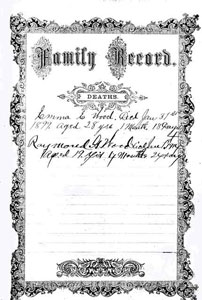 Family Record.
DEATHS.
Emma C Wood, Died Jan 31st
1892 aged 28 yrs 1 Month 18 days
Raymond A Wood Died
Aged 17 yrs 4 Months 24 days